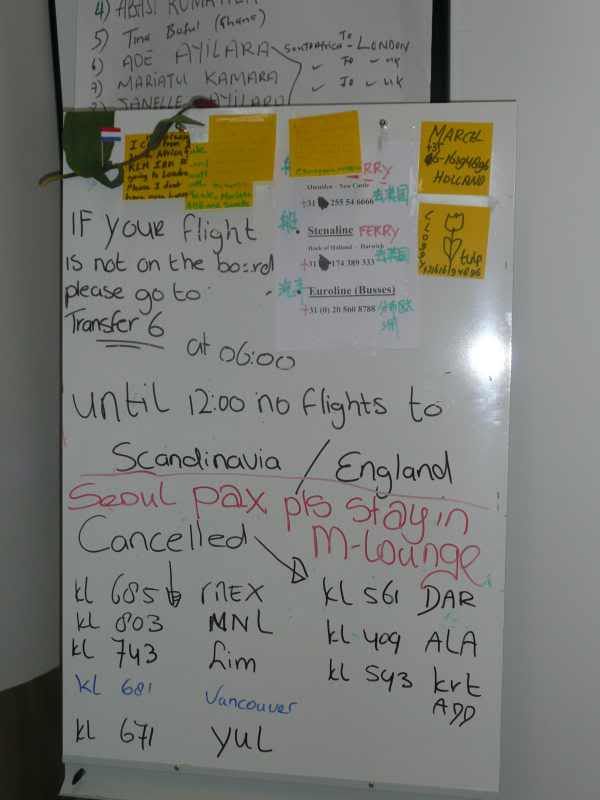 4) ABASI KUMA
5) Tina Buful (Ghana)
6) ADE AYILARA
SOUTH AFRICA TO LONDON
7) MARIATUL KAMARA
To UK
JANELLE AYILARA
KLM
going to London
Please I don't
MARCEL
HOLLAND
CLOGGY
tulp
FERRY
Ijmuiden - New Castle
+31 255 54 6666 去英国
船 Stenaline FERRY
Hoek of Holland - Harwich
+31 174 389 333 去英国
汽车 Euroline (Busses)
+31 (0) 20 560 8788
IF your flight
is not on the board
please go to
Transfer 6
at 06:00
until 12:00 no flights to
Scandinavia / England
Seoul pax pls stay in
M-Lounge
Cancelled
kl 685 MEX
kl 803 MNL
kl 743 Lim
kl 681 Vancouver
kl 671 YUL
kl 561 DAR
kl 409 ALA
kl 543 krt
ADD